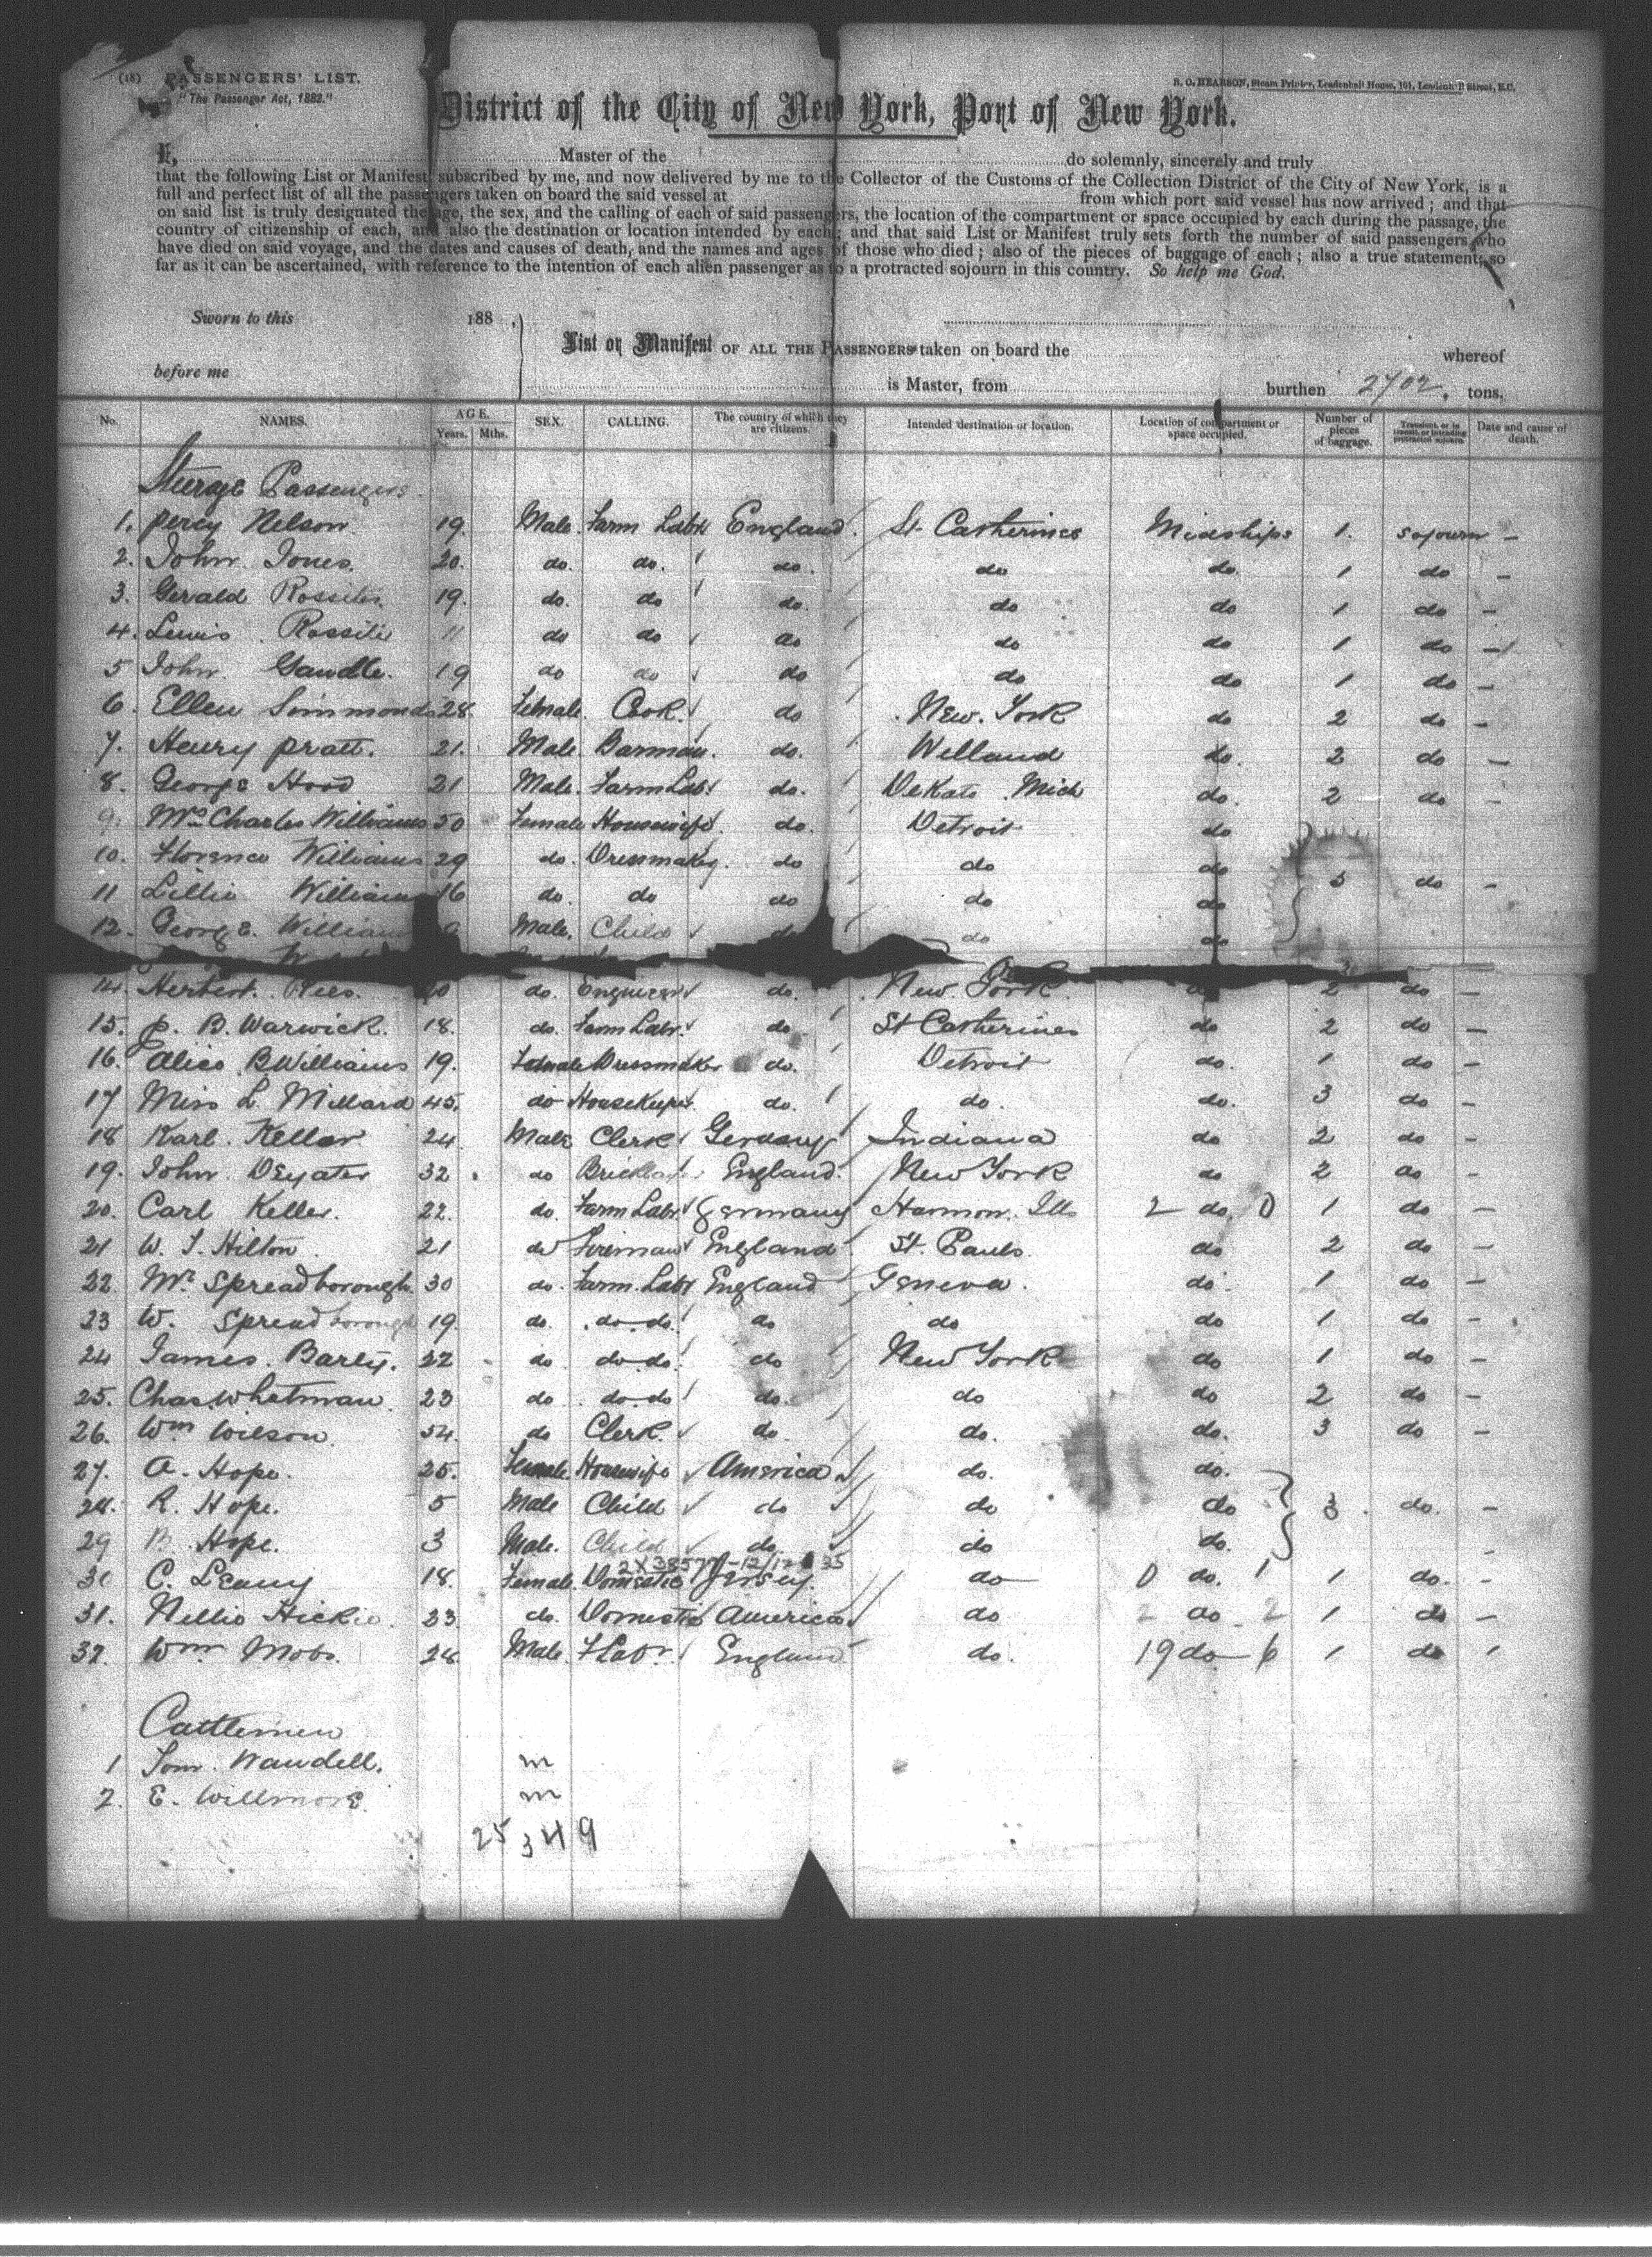 (18) PASSENGERS' LIST.
"The Passenger Act, 1882."
R. O. HEARSON, Steam Printer, Leadenhall House, 101, Leadenhall Street, E.C.
District of the City of New York, Port of New York.
I, Master of the do solemnly, sincerely and truly
that the following List or Manifest subscribed by me, and now delivered by me to the Collector of the Customs of the Collection District of the City of New York, is a
full and perfect list of all the passengers taken on board the said vessel at from which port said vessel has now arrived; and that
on said list is truly designated the age, the sex, and the calling of each of said passengers, the location of the compartment or space occupied by each during the passage, the
country of citizenship of each, and also the destination or location intended by each; and that said List or Manifest truly sets forth the number of said passengers who
have died on said voyage, and the dates and causes of death, and the names and ages of those who died; also of the pieces of baggage of each; also a true statement; so
far as it can be ascertained, with reference to the intention of each alien passenger as to a protracted sojourn in this country. So help me God.
Sworn to this 188 ,
List or Manifest OF ALL THE PASSENGERS taken on board the whereof
before me
is Master, from burthen 2702. tons.
No. NAMES. AGE. Years. Mths. SEX. CALLING. The country of which they are citizens. Intended destination or location. Location of compartment or space occupied. Number of pieces of baggage. Transient, or in transit, or intending protracted sojourn. Date and cause of death.
Steerage Passengers
1. Percy Nelson 19. Male. Farm Labr England. St Catherines Midships 1. Sojourn -
2. John Jones. 20. do. do. do. do do. 1 do -
3. Gerald 19. do. do do. do do 1 do -
4. Lewis 11 do do do do do 1 do -
5 John Gaudle. 19 do do do do do 1 do -
6. Ellen Simmonds 28 Female Cook. do New York do 2 do -
7. Henry Pratt. 21. Male Barman. do. Welland do. 2 do -
8. George Hood 21 Male. Farm Lab. do. DeKato Mich do. 2 do -
9. Mrs Charles Williams 50 Female Housewife. do. Detroit do
10. Florence Williams 29 do. Dressmaker. do do do
11 Lillie Williams 16 do. do do do do 5 do -
12. George. William Male. Child do do do
14. Herbert Rees. do. Engineer do. New York 2 do -
15. P. B. Warwick. 18. do. Farm Labr. do. St Catherines do 2 do -
16. Alice B Williams 19. Female Dressmaker do. Detroit do. 1 do -
17 Miss L. Millard 45. do Housekeeper. do. do. do. 3 do -
18 Karl Keller 24 Male Clerk Germany Indiana do 2 do -
19. John 32 do England. New York do 2 do -
20. Carl Keller. 22. do. Farm Labr. Germany Harmon. Ills 2 do. 0 1 do -
21 W. J. Hilton 21 do Fireman England. St. Pauls. do 2 do -
22. Mr. Spreadborough. 30 do. Farm. Labr England Geneva. do. 1 do -
23 W. Spreadborough 19. do. do. do. do do do 1 do -
24 James. Barty. 22 do do. do. do New York do 1 do -
25. Chas Whetman 23 do do. do do. do do 2 do -
26. Wm Wilson. 54. do Clerk. do. do. do. 3 do -
27. A. Hope. 25. Female Housewife America do. do.
28. R. Hope. 5 Male Child do do do 3. do. -
29 B. Hope. 3 Male. Child do. do do. -
2X38577-12/12 35
30 C. Leamy 18. Female. Domestic Jersey. do 0 do. 1 1 do. -
31. Nellie Hickie. 23 do. Domestic America do 2 do 2 1 do -
32. Wm Mobs. 28 Male. F Labr. England do. 19 do 6 1 do
Cattlemen
1 Tom. Waudell. m
2. E. Willmore. m
25 3 4 9